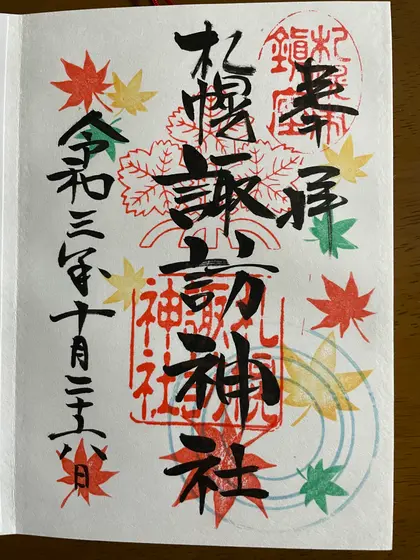 奉拝
札幌諏訪神社
令和三年十月二十六日
札幌市
鎮座
札幌
諏訪
神社